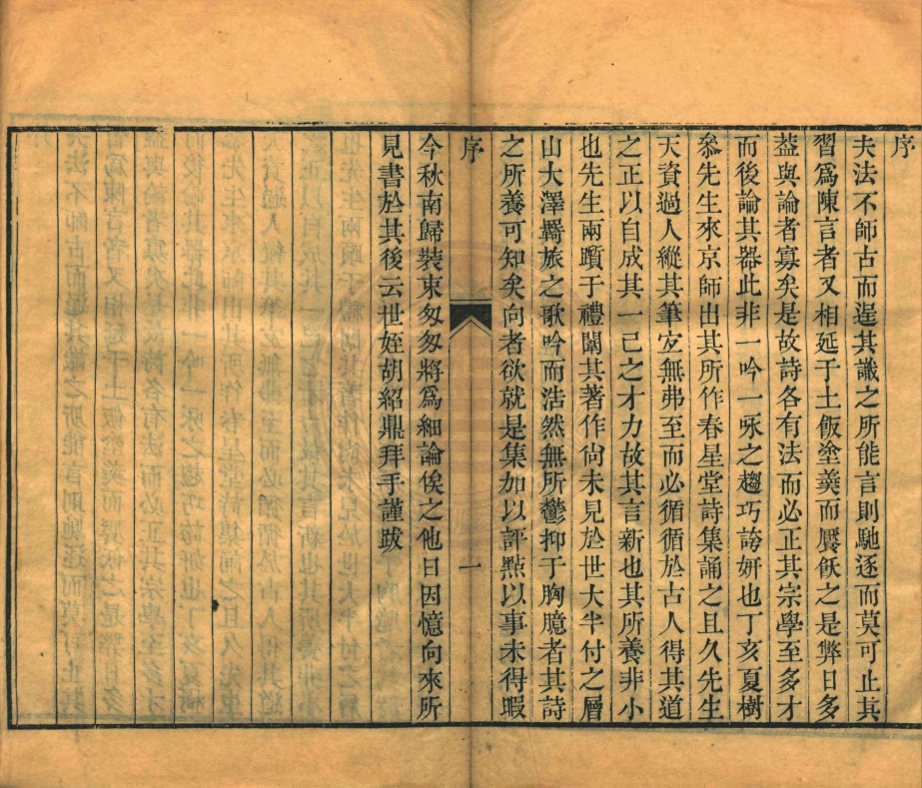 序
夫法不師古而逞其識之所能言則馳逐而莫可止其
習爲陳言者又相延于土飯塗羹而饜飫之是弊日多
葢與論者寡矣是故詩各有法而必正其宗學至多才
而後論其器此非一吟一咏之趨巧誇妍也丁亥夏樹
叅先生來京師出其所作春星堂詩集誦之且久先生
天資過人縱其筆宐無弗至而必循循於古人得其道
之正以自成其一已之才力故其言新也其所養非小
也先生兩躓于禮闈其著作尙未見於世大半付之層
山大澤羇旅之歌吟而浩然無所鬱抑于胸臆者其詩
之所養可知矣向者欲就是集加以評點以事未得暇
序
一
今秋南歸裝束匆匆將爲細論俟之他日因憶向來所
見書於其後云世姪胡紹鼎拜手謹跋